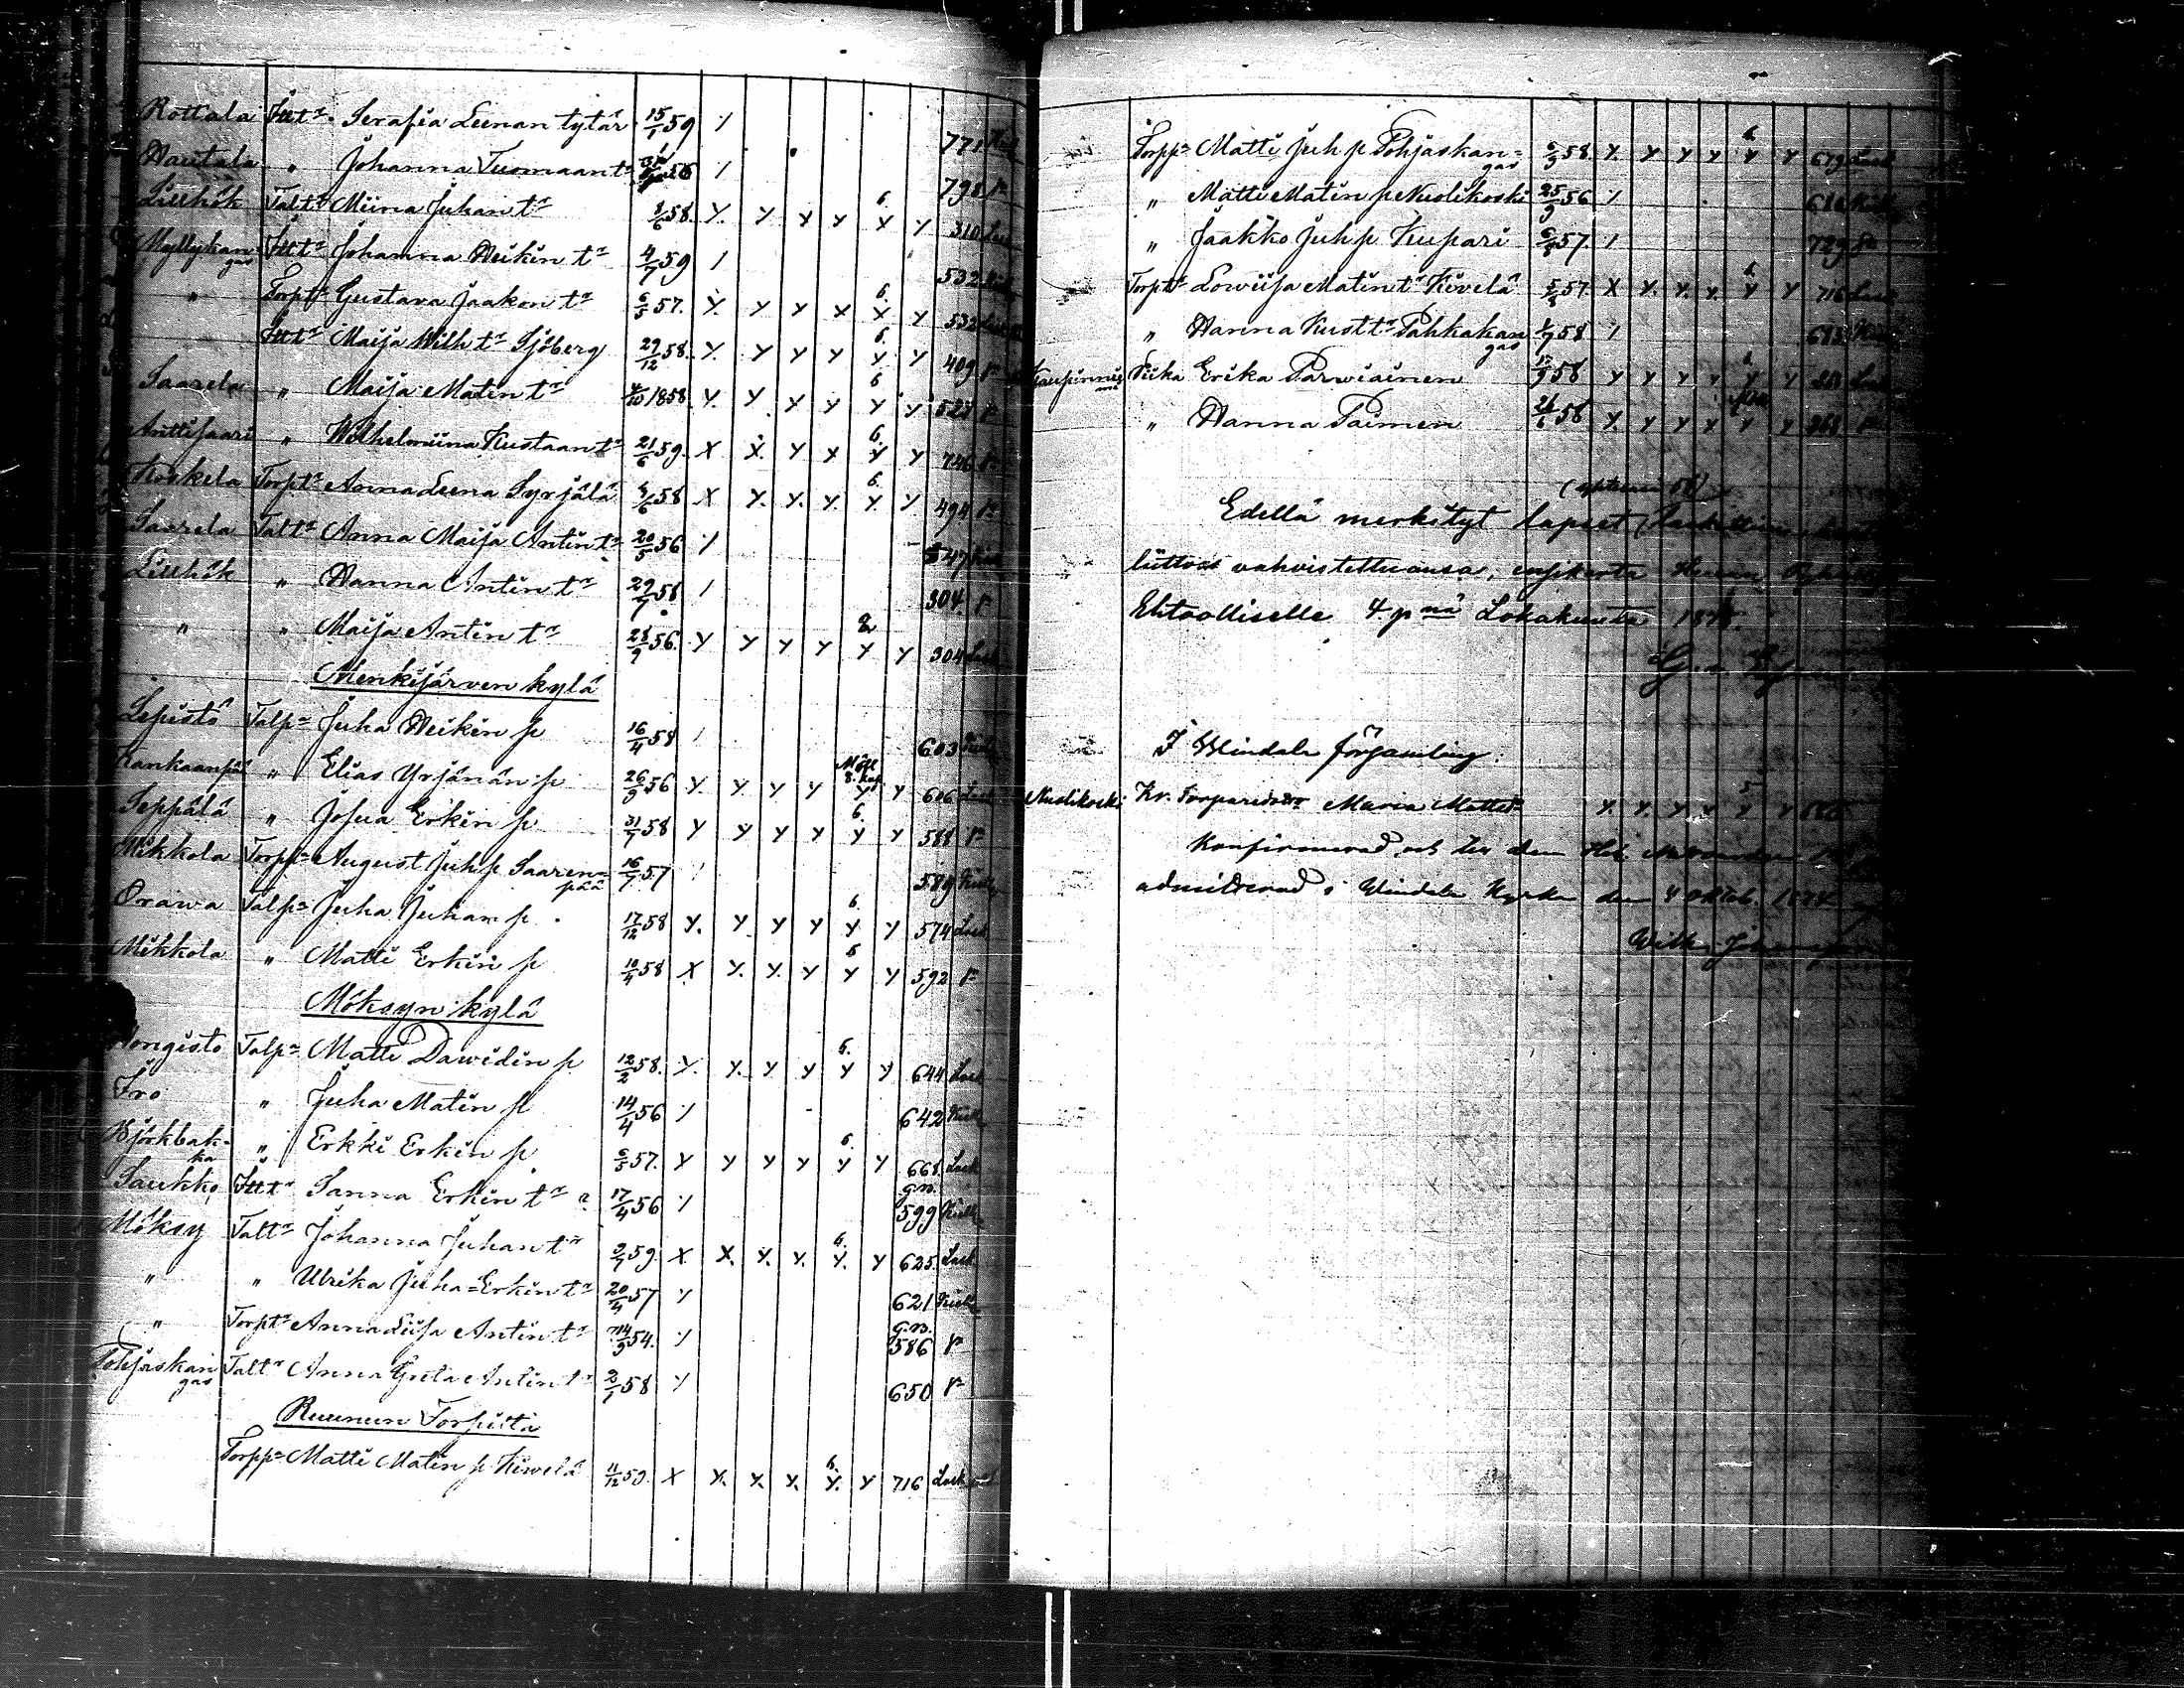 Rottala Itt:r Serafia Leenan tytär 15/1 59 / 771
Hautala " Johanna Tuomaan t:r 56 / 798 r=
Lillhök Talt:r Miina Juhan t:r 8/6 58. Y. Y Y Y 6. X Y 310 Lask
Myllykangas Itt:r Johanna Heikin t:r 4/7 59 / 532
" Torpt:r Gustava Jaakon t:r 6/5 57. Y. Y Y X 6. X Y 532
Itt:r Maija Wilh t:r Sjöberg 29/12 58. Y. Y Y Y 6. Y Y 409 r=
Saarela " Maija Matin t:r 4/10 1858. Y. Y Y Y 6 Y Y 528 r=
Anttisaari " Wilhelmiina Kustaan t:r 21/6 59. X X. Y X 6. Y Y 746 r=
Koskela Torpt:r Anna Leena Syrjälä 4/6 58 X Y. Y. Y. 6. Y. Y 494 r=
Saarela Talt:r Anna Maija Antin t:r 20/5 56 / 547
Lillhök " Hanna Antin t:r 29/7 58 / 304 r
" " Maija Antin t:r 28/9 56. Y Y Y Y 8. Y Y 304 Lask
Menkijärven kylä
Lepistö Talp= Juha Heikin p 16/4 58 / 603
Kankaanpää " Elias Yrjänän p 26/9 56 Y. Y. Y Y Y Y 606 Lask
Seppälä " Josua Erkin p 31/7 58 Y Y Y Y 6. Y Y 588 r=
Mikkola Torpp= August Juh p Saarenpää 16/7 57 / 589
Orawa Talp= Juha Juhan p. 17/12 58 Y. Y Y Y 6. Y Y 574 Lask
Mikkola " Matti Erkin p 10/4 58 X Y. Y. Y 6 Y Y 592 r=
Möksyn kylä
Hongisto Talp= Matti Dawidin p 12/2 58. Y. Y. Y Y 6. Y Y 644 Lask
Iro " Juha Matin p 14/4 56 / 642
Björkbakka " Erkki Erkin p 6/5 57. Y Y Y Y 6. Y Y 668. Lask
Saukko Itt:r Sanna Erkin t:r 17/4 56 / g.n. 599
Möksy Talt:r Johanna Juhan t:r 2/7 59. X X. Y. Y. 6. Y. Y 625. Lask
" " Ulrika Juha=Erkin t:r 20/4 57 / 621
" Torpt:r Anna Liisa Antin t:r 14/9 54. / g.n. 586 r=
Pohjaskangas Talt:r Anna Greta Antin t:r 2/1 58 / 650 r=
Ruunun Torpista
Torpp= Matti Matin p Kiwelä 11/12 59. X Y. Y. Y. 6. Y. Y 716 Lask
Torpp= Matti Juh p Pohjaskangas 58 Y. Y Y Y 6. Y Y 679 Lask
" Matti Matin p Nuolikoski 25/9 56 / 686
" Jaakko Juh p Kupari 57. / 729
Torpt:r Lowiisa Matin t:r Kivelä 57. X Y. Y. Y. 6. Y Y 716 Lask
" Hanna Kust t:r Pahkakangas 1/9 58 /
Piika Erika Parwiainen 17/9 58 Y Y Y Y 6 Y Y
" Hanna Paimen 24/6 58 Y. Y Y X Y Y 268
Edellä merkityt lapset
liittonsa vahvistettuansa, ensikerta Herran
Ehtoolliselle 4. p nä Lokakuuta 187
I Windala församling.
Nuolikoski Kr. Torparedotr Maria Mattsdr Y. Y. Y Y 5 Y Y
Konfirmerad och till den Hel. Nattvarden
admitterad i Windala Kyrka den 4 Oktob. 1874